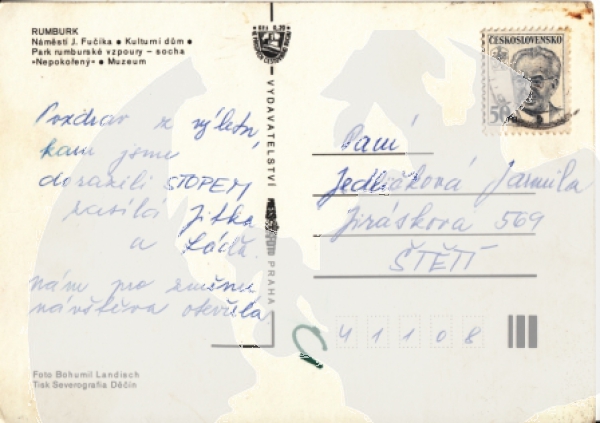 RUMBURK
Náměstí J. Fučíka ● Kulturní dům ●
Park rumburské vzpoury – socha
»Nepokořený« ● Muzeum
Pozdrav z výletu,
kam jsme
dorazili STOPEM
zasílá Jitka
a Láďa.
nám pro změnu
návštěva otevřela
Foto Bohumil Landisch
Tisk Severografia Děčín
VYDAVATELSTVÍ
PRAHA
ČESKOSLOVENSKO
50
Paní
Jedličková Jarmila
Jiráskova 569
ŠTĚTÍ
41108